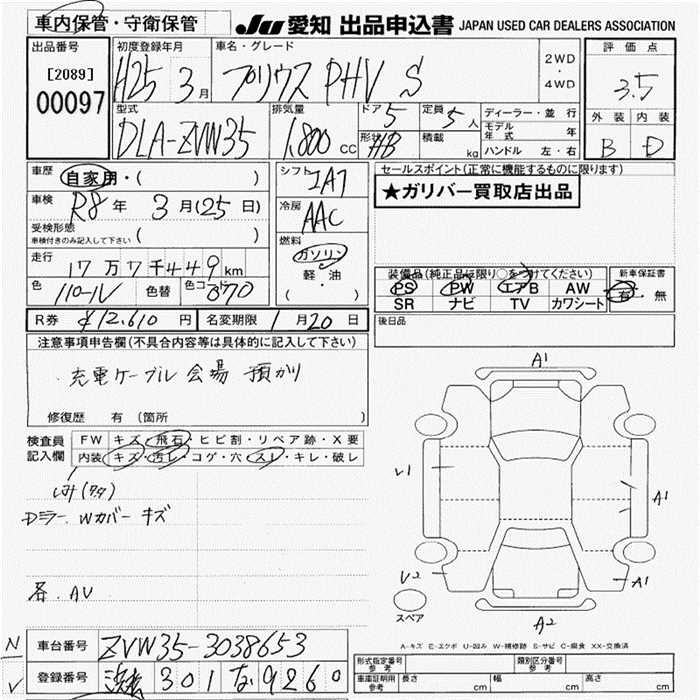 車内保管・守衛保管
JU 愛知 出品申込書 JAPAN USED CAR DEALERS ASSOCIATION
出品番号 初度登録年月 車名・グレード 2WD・4WD 評価点
[2089]
00097
H25年 3月 プリウス PHV S 3.5
型式 排気量 ドア 5 定員 5人 ディーラー・並行 外装 内装
DLA-ZVW35 1,800 cc 形状 HB 積載 kg モデル年式 年 B D
ハンドル 左・右
車歴 自家用・( ) シフト IAT セールスポイント(正常に機能するものに限ります)
★ガリバー買取店出品
車検 R8年 3月(25日) 冷房 AAC
受検形態 ( )
車検付きのみ記入して下さい
燃料 ガソリン 軽・油 ( )
走行 17万7千449km
装備品(純正品に限り○をつけてください) 新車保証書
色 110-IV 色替 色コード 070 PS PW エアB AW 有・無
SR ナビ TV カワシート
R券 ¥12,610円 名変期限 1月20日 後日品
注意事項申告欄(不具合内容等は具体的に記入して下さい)
充電ケーブル 会場 預かり
修復歴 有 (箇所 )
検査員記入欄 FW キズ・飛石・ヒビ割・リペア跡・X要
内装 キズ・汚レ・コゲ・穴・スレ・キレ・破レ
Dミラー Wカバー キズ
各. AV
A1
A1
A1
A2
V2
スペア
A-キズ E-エクボ U-凹み W-補修跡 S-サビ C-腐食 XX-交換済
車台番号 ZVW35-3038653
登録番号 浜松 301 な 9260
型式指定番号 参考 類別区分番号 参考
車庫証明用参考 長さ cm 幅 cm 高さ cm